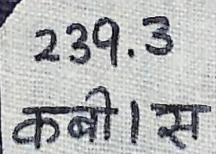 239.3
कबी।स